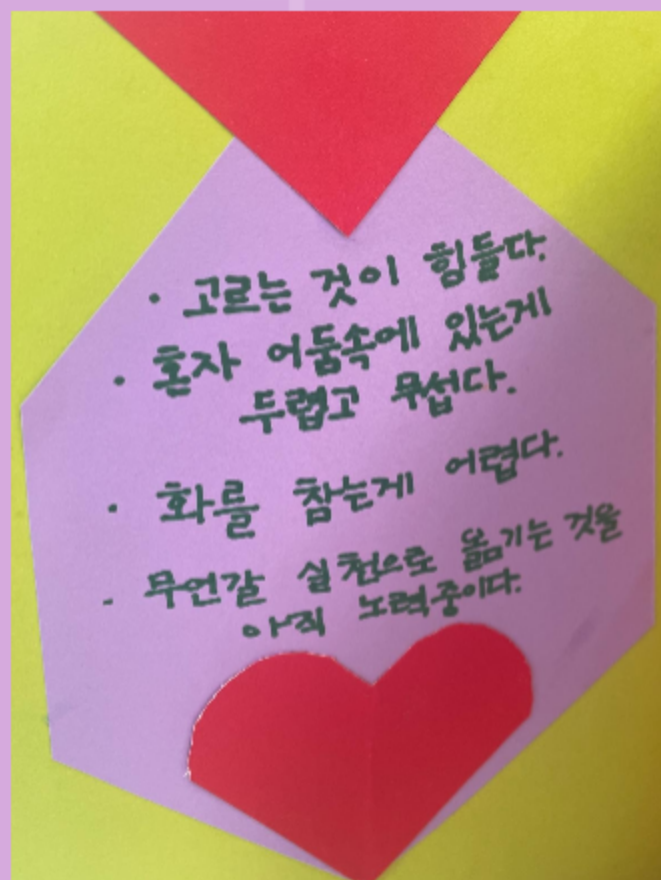 · 고르는 것이 힘들다.
· 혼자 어둠속에 있는게
두렵고 무섭다.
· 화를 참는게 어렵다.
- 무언갈 실천으로 옮기는 것을
아직 노력중이다.